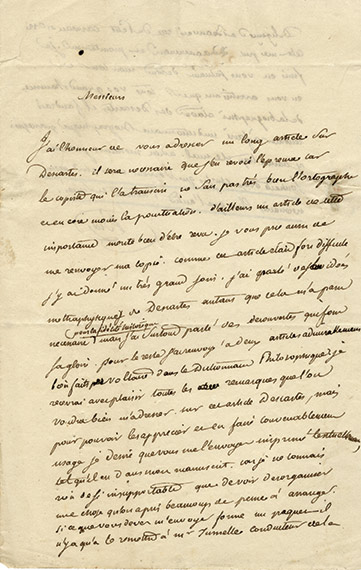 Monsieur
J'ai l'honneur de vous adresser un long article sur
Descartes. il sera necessaire que j'en revoie l'épreuve car
le copiste qui l'a transcrit ne sait pas très bien l'ortographe
et encore moins la ponctuation. d'ailleurs un article de cette
importance merite bien d'être revu. je vous prie aussi de
me renvoyer ma copie. comme cet article était fort difficile
j'y ai donné un très grand soin. j'ai parlé des idées
metaphysiques de Descartes autant que cela m'a paru
necessaire mais j'ai surtout parlé des decouvertes qui font
sa gloire. pour le reste je renvoie a deux articles admirablement
bien faits par voltaire dans le Dictionnaire Philosophique. je
recevrai avec plaisir toutes les remarques que l'on
voudra bien m'adresser sur cet article Descartes, mais
pour pouvoir les apprécier et en faire convenablement
usage je desire que l'on m'envoye imprimé textuellement
tel qu'il est dans mon manuscrit. car je ne connais
rien de si insupportable que de voir desorganiser
une chose qu'on a après beaucoup de peine à arranger.
si ce que vous devez m'envoyer forme un paquet il
n'y a qu'à le remettre à mr Jumelle conducteur de la